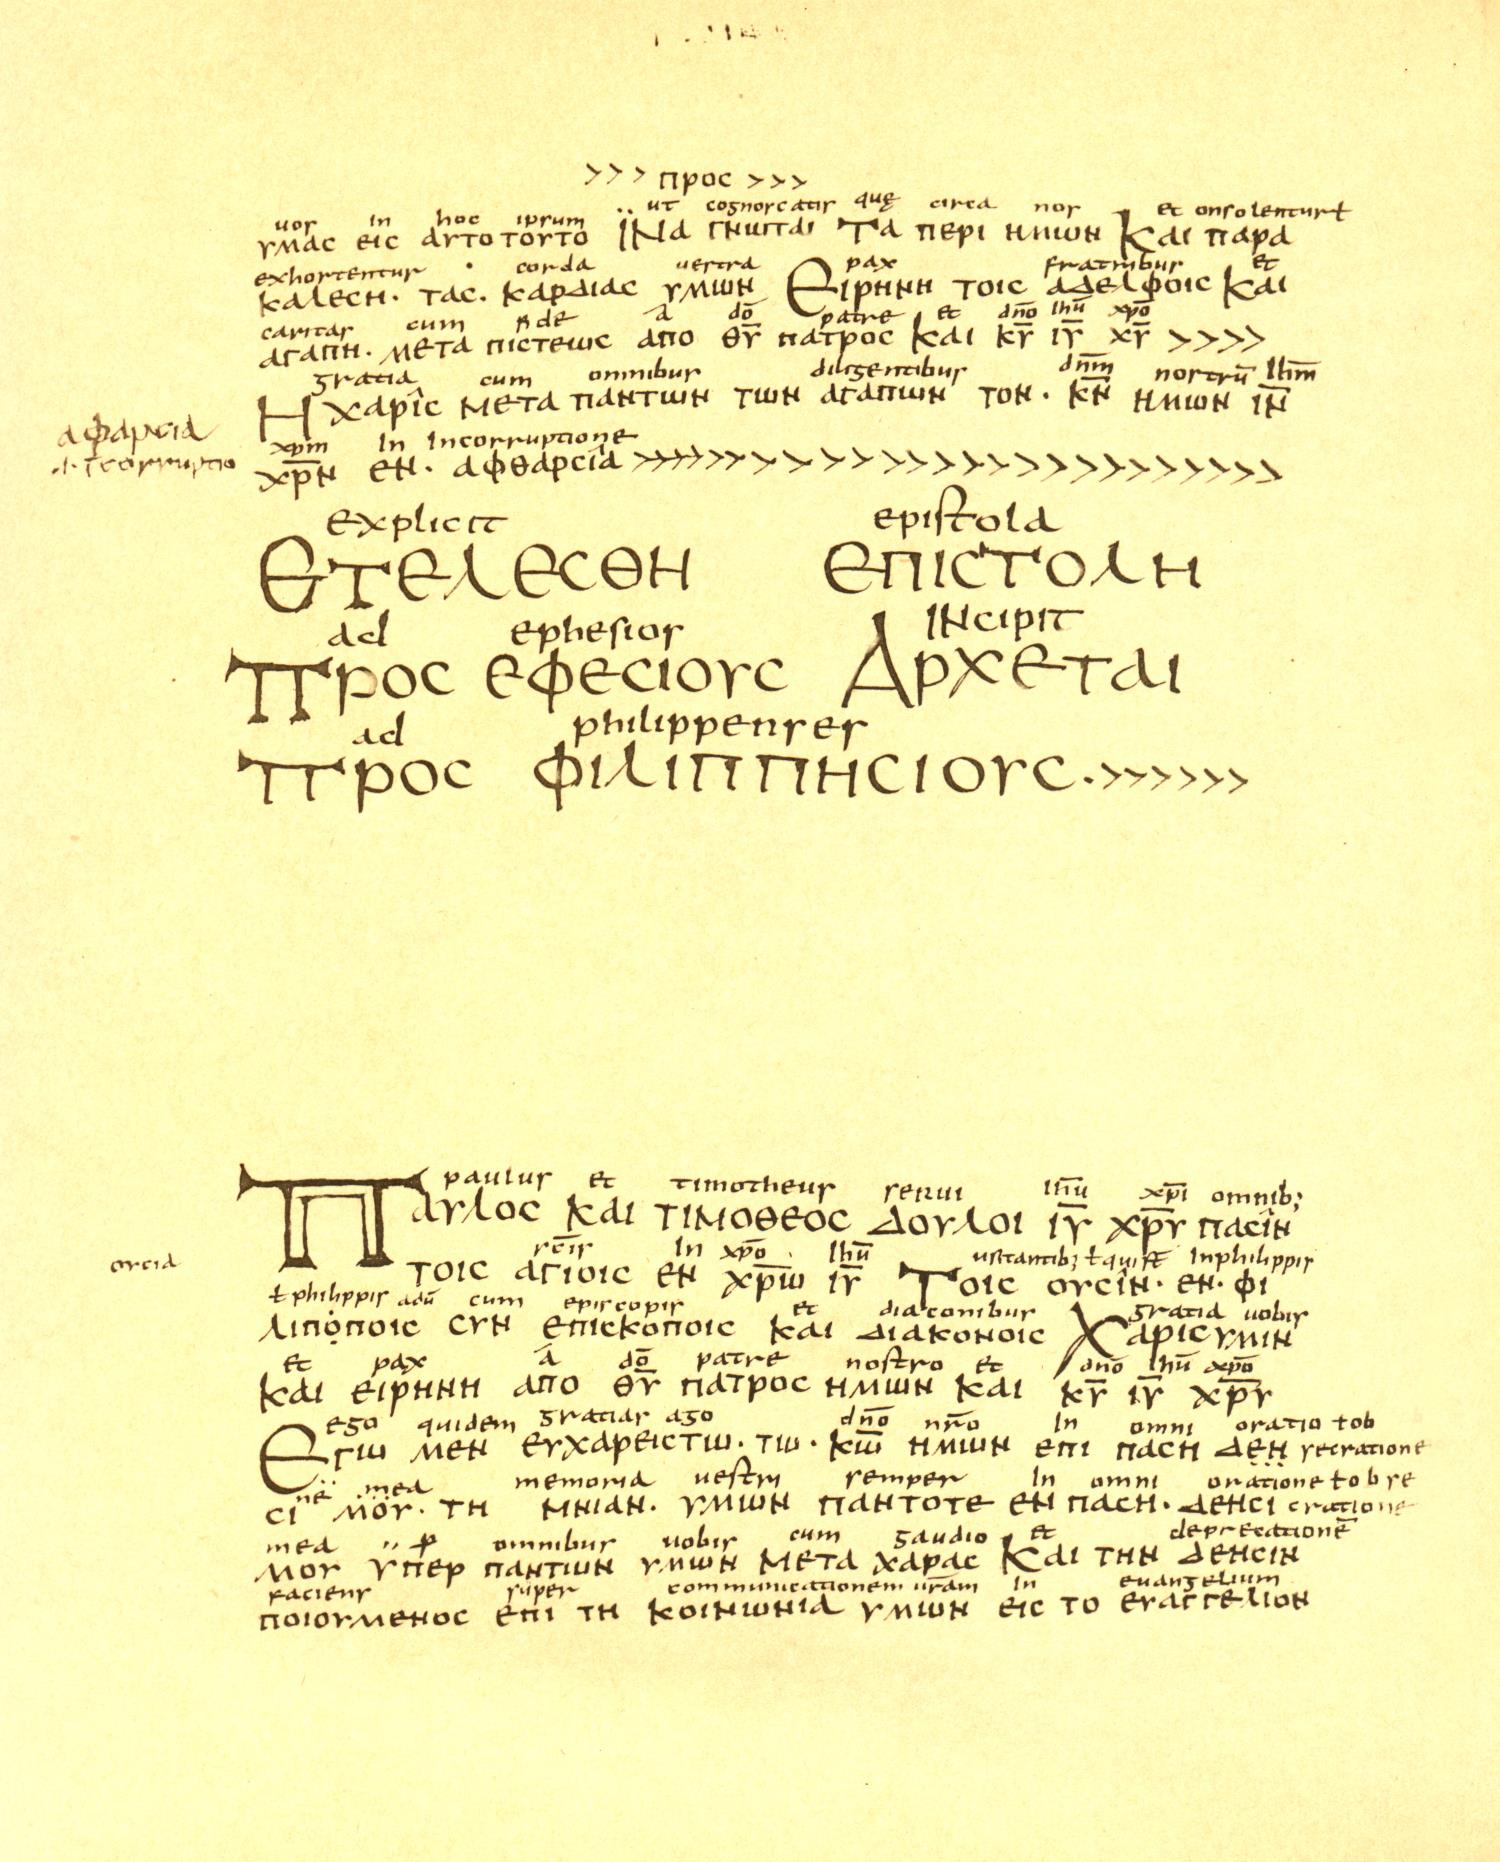 >>> προς >>>
uos in hoc ipsum ut cognoscatis quę circa nos et onsolentur ł
υμας εις αυτο τουτο ϊΝα γνωται Τα περι ημων Και παρα
exhortentur corda vestra pax fratribus et
καλεση· τας· καρδιας υμων Ειρηνη τοις αδελφοις Και
caritas cum fide a dō patre et dn̄o ihū xp̄o
αγαπη· μετα πιστεως απο θ̄ῡ πατρος Και κ̄ῡ ῑῡ χ̄ῡ >>>>
gratia cum omnibus diligentibus dn̄m nostrū ihm̄
Η χαρις μετα παντων των αγαπων τον· κ̄ν̄ ημων ῑν̄
αφαρσια
xp̄m in incorruptione
χ̄ρ̄ν̄ εν· αφθαρσια >>>>>>>>>>>>>>>>>>>>>>>>
explicit epistola
Ετελεσθη επιστολη
ad ephesios INcipit
Προς εφεσιους Αρχεται
ad philippenses
Προς φιλιππησιους·>>>>>>
paulus et timotheus serui ihū xp̄i omnib;
Παυλος Και τιμοθεος Δουλοι ῑῡ χ̄ρ̄ῡ πασιν
ουσια
sc̄is in xp̄o ihū ustantib; ł qui st̄ inphilippis
τοις αγιοις εν χ̄ρ̄ω̄ ῑῡ Τοις ουσιν· εν· φι
ł philippis adū cum episcopis et diaconibus gratia uobis
λιποποις συν επισκοποις και διακονοις Χαρις υμιν
et pax a dō patre nostro et dn̄o ihū xp̄o
και ειρηνη απο θ̄ῡ πατρος ημων και κ̄ῡ ῑῡ χ̄ρ̄ῡ
ego quidem gratias ago dn̄o nr̄o in omni oratio ł ob
Εγω μεν ευχαρειστω· τω· κ̄ω̄ ημων επι παση δεη secratione
ne mea memoria vestri semper in omni oratione ł obse
σι μου· τη μνιαν· υμων παντοτε εν παση· δεησι cratione
mea p omnibus uobis cum gaudio et deprecationē
μου υπερ παντων υμων Μετα χαρας Και την δεησιν
faciens super communicationem ur̄am in euangelium
ποιουμενος επι τη κοινωνια υμων εις το ευαγγελιον